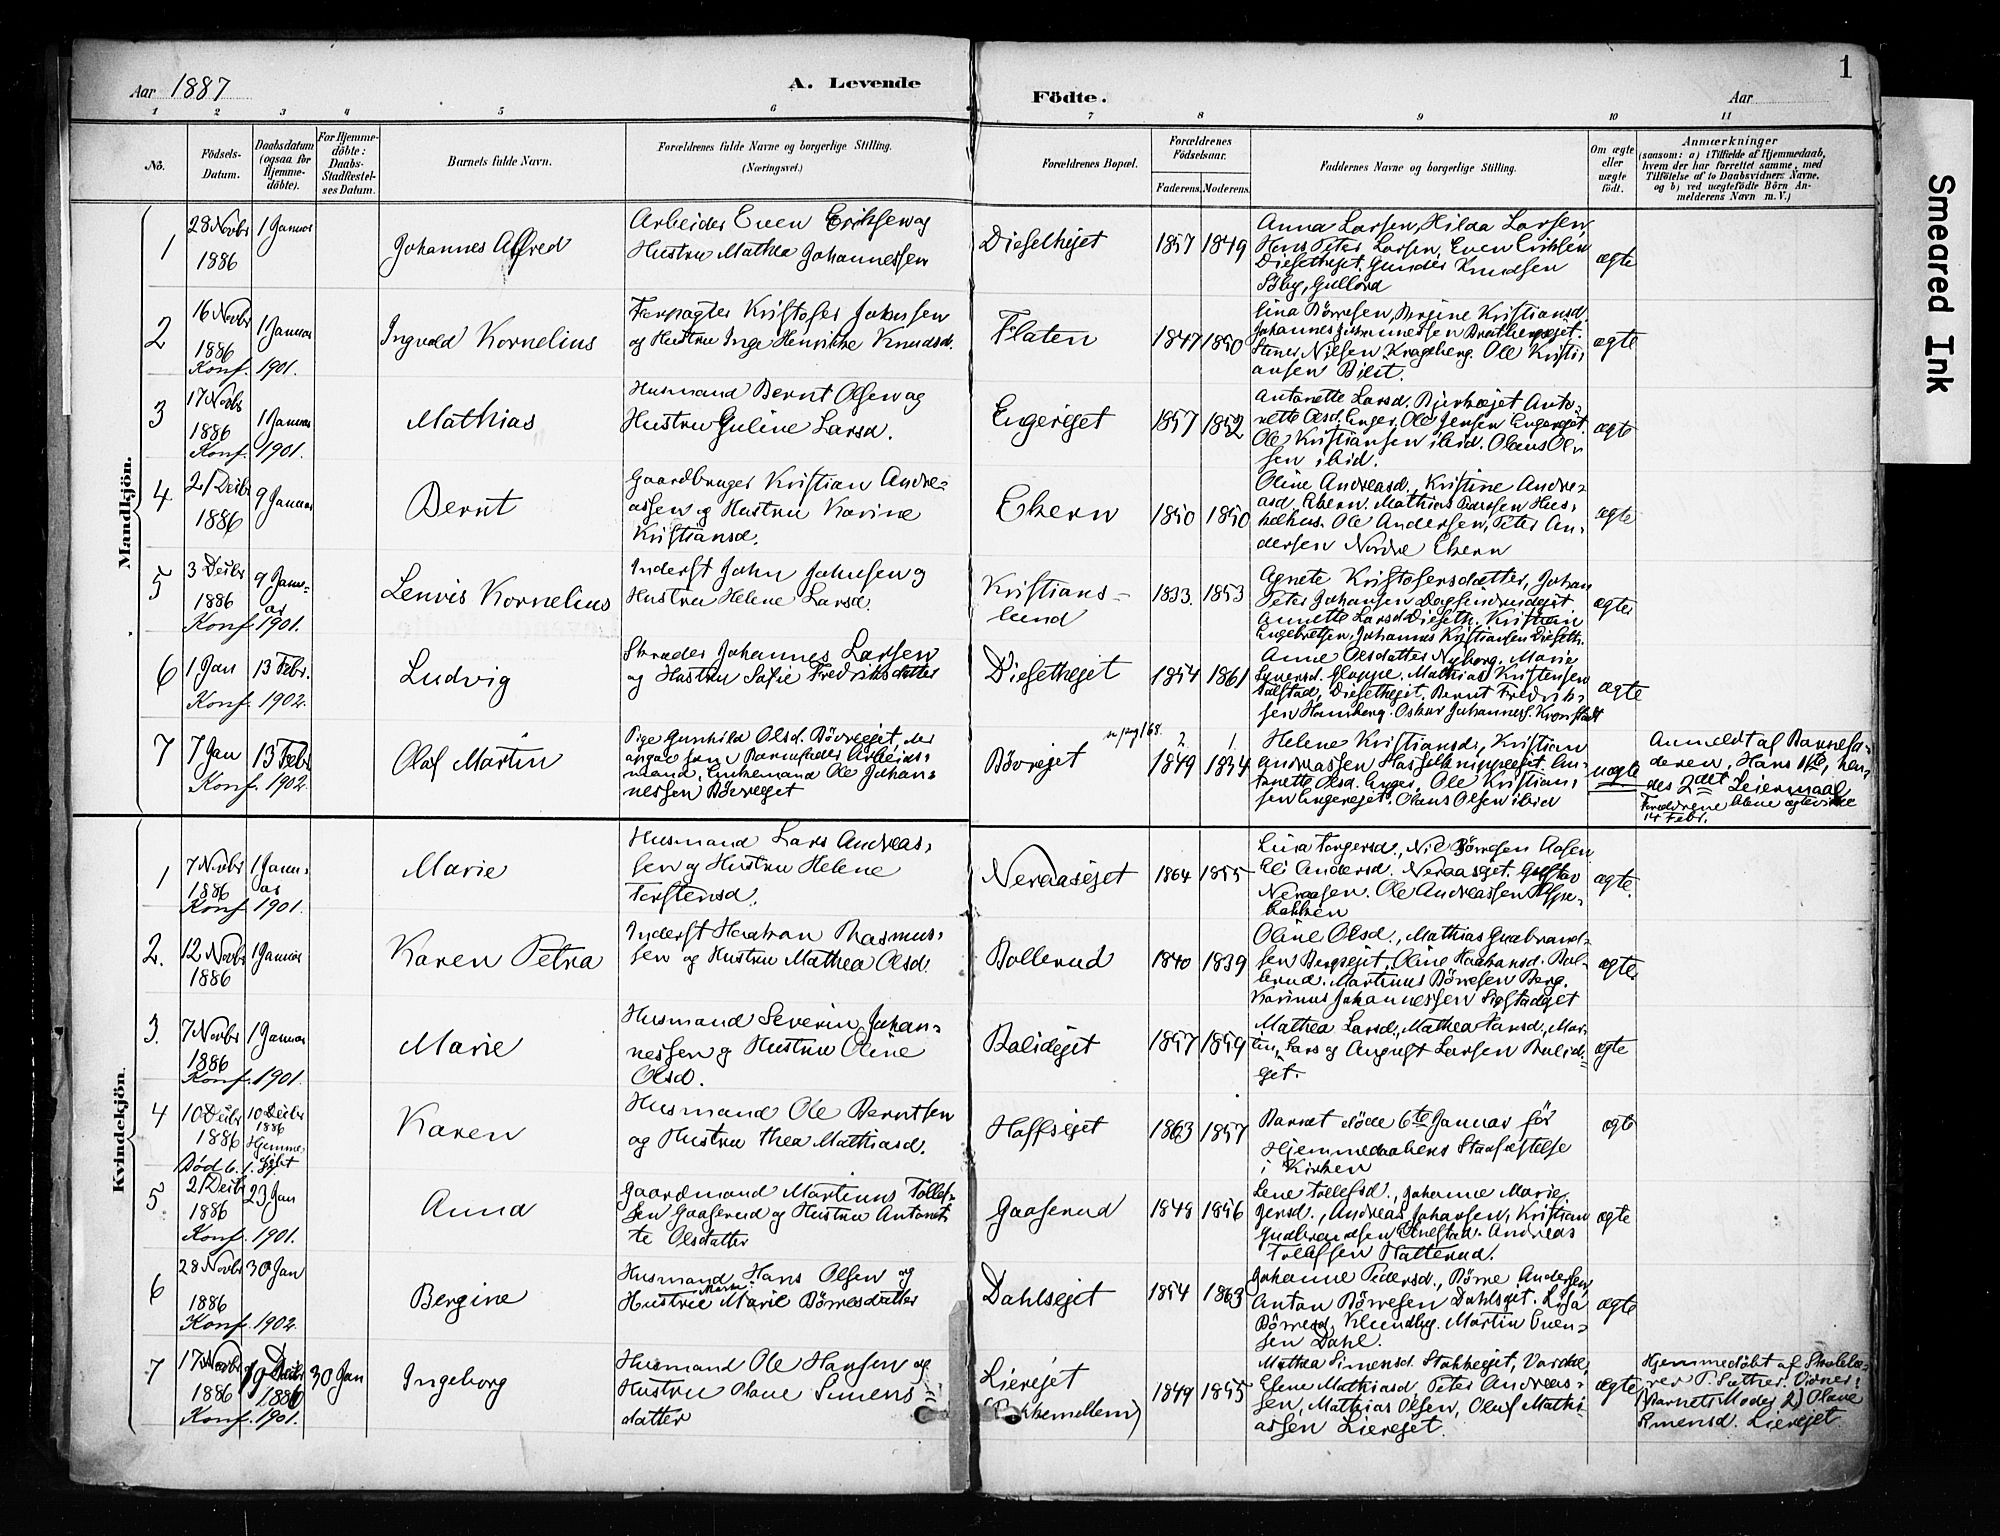 Aar 1887
A. Levende
Födte.
Aar
1
1 2 3 4 5 6 7 8 9 10 11
No.
Födsels-
Datum.
Daabsdatum
(ogsaa for
Hjemme-
döbte).
For Hjemme-
döbte:
Daabs-
Stadfæstel-
ses Datum.
Barnets fulde Navn.
Forældrenes fulde Navne og borgerlige Stilling.
(Næringsvei.)
Forældrenes Bopæl.
Forældrenes
Födselsaar.
Faderens. Moderens.
Faddernes Navne og borgerlige Stilling.
Om ægte
eller
uægte
født.
Anmærkninger
(saasom: a) i Tilfælde af Hjemmedaab,
hvem der har forrettet samme, med
Tilföielse af to Daabsvidners Navne.
og b) ved uægtefödte Börn An-
melderens Navn m. V.)
Mandkjön.
1
28 Novbr
1886
1 Januar
Johannes Alfred
Arbeider Even Eriksen og
Hustru Mathea Johannessen
Diesethejet
1857 1849
Anna Larsen, Hilda Larsen,
Hans Peter Larsen, Even Eriksen
Diesethejet. Gunder Knudsen
ægte
2
16 Novbr
1886
Konf. 1901.
1 Januar
Ingvald Kornelius
Forpagter Kristofer Johnsen
og Hustru Inge Henrikke Knudsd.
Flaten
1847 1850
Lina Børresen, Bergine Kristiansd.
Nilsen Krageberg. Ole Kristi-
ansen
ægte
3
17 Novbr
1886
Konf. 1901.
1 Januar
Mathias
Husmand Bernt Olsen og
Hustru Guline Larsd.
Engerejet
1857 1852
Antonette Larsd. Anto-
nette Olsd. Enger, Ole Jensen Engerejet.
Ole Kristiansen ibid. Olaus Ol-
sen ibid.
ægte
4
21 Decbr
1886
9 Januar
Bernt
Gaardbruger Kristian Andre-
assen og Hustru Karine
Kristiansd.
Ekern
1850 1850
Oline Andreasd., Kristine Andre-
asd. Ekern. Mathias Pedersen
Ole Andersen, Peter An-
dersen Nordre Ekern
ægte
5
3 Decbr
1886
Konf. 1901.
9 Janu-
ar
Lenvis Kornelius
Inderst John Johnsen og
Hustru Helene Larsd.
Kristians-
lund
1833. 1853
Agnete Kristofersdatter, Johan
Peter Johansen
Annette Larsd. Dieseth. Kristian
Engebretsen, Johannes Kristiansen Dieseth.
ægte
6
1 Jan
Konf. 1902.
13 Febr.
Ludvig
Skræder Johannes Larsen
og Hustru Sofie Fredriksdatter
Diesethejet
1854 1861
Anne Olsdatter Nyborg, Marie
Gloppe. Mathias Kristensen
Diesethejet. Bernt Fredrik-
sen Oskar Johanness. Kronstadt
ægte
7
7 Jan
Konf. 1902.
13 Febr
Olaf Martin
Pige Gunhild Olsd. Bövreejet, der
angav som Barnefader Arbeids-
mand, Enkemand Ole Johan-
nessen Bövreejet
Bövrejet
2. 1.
1849 1834
Helene Kristiansd., Kristian
Andreassen An-
tonette Olsd. Enger, Ole Kristian-
sen Engerejet. Olaus Olsen ibid
uægte
Anmeldt af Barnefa-
deren, Hans 1te, hen-
des 2det Leiermaal
Forældrene
14 Febr.
Kvindekjön.
1
7 Novbr
1886
Konf. 1901.
1 Janu-
ar
Marie
Husmand Lars Andreas-
sen og Hustru Helene
Torstensd.
Neraasejet
1864 1855
Lina Torgersd., Børresen Aasen
Eli Andersd. Neraasejet. Gustav
Neraasen. Ole Andreassen
bakken
ægte.
2.
12 Novbr
1886
1 Januar
Karen Petra
Inderst Haakon Rasmus-
sen og Hustru Mathea Olsd.
Bollerud
1840 1839
Oline Olsd., Mathias Gudbrand-
sen Bergsejet, Oline Haakansd. Bol-
lerud. Martinus Børresen Berg.
Karinus Johannessen
ægte.
3.
7 Novbr
1886
Konf. 1901.
1 Januar
Marie
Husmand Severin Johan-
nessen og Hustru Oline
Olsd.
Balidejet
1857 1859
Mathea Larsd., Mathea Hansd., Mar-
tin, Lars og August Larsen Balid-
ejet.
ægte
4
10 Decbr
1886
Död 6. 1. 87
10 Decbr
1886
Hjemme-
döbt
Karen
Husmand Ole Berntsen
og Hustru Thea Mathiasd.
Hoffsejet
1863 1857
Barnet döde 6te Januar för
Hjemmedaabens Stadfæstelse
i Kirken
ægte
5
21 Decbr
1886
Konf. 1901.
23 Jan
Anna
Gaardmand Martinus Tollef-
sen Gaaserud og Hustru Antonet-
te Olsdatter
Gaaserud
1848 1856
Lene Tollefsd., Johanne Marie
Jensd., Andreas Johansen, Kristian
Gudbrandsen Andreas
Tollefsen Hatterud.
ægte
6
28 Novbr
1886
Konf. 1902.
30 Jan
Bergine
Husmand Hans Olsen og
Hustru Marie Börresdatter
Dahlsejet
1854 1863
Johanne Pedersd., Börre Andersen,
Anton Börresen Dahlsejet. Lisa
Börresd. Klundby. Martin Even-
sen Dahl.
ægte
7
17 Novbr
1886
Konf. 1901.
19 Decbr
1886
30 Jan
Ingeborg
Husmand Ole Hansen og
Hustru Olave Simens-
datter
Lierejet
1849 1855
Mathea Simensd. Stokkejet,
Mathiasd., Peter Andreas-
sen, Mathias Olsen, Olaf Mathi-
assen Lierejet.
ægte
Hjemmedöbt af Skolelæ-
rer P. Sæther. Vidner:
1) Barnets Moder 2) Olave
Simensd. Lierejet.
Smeared Ink